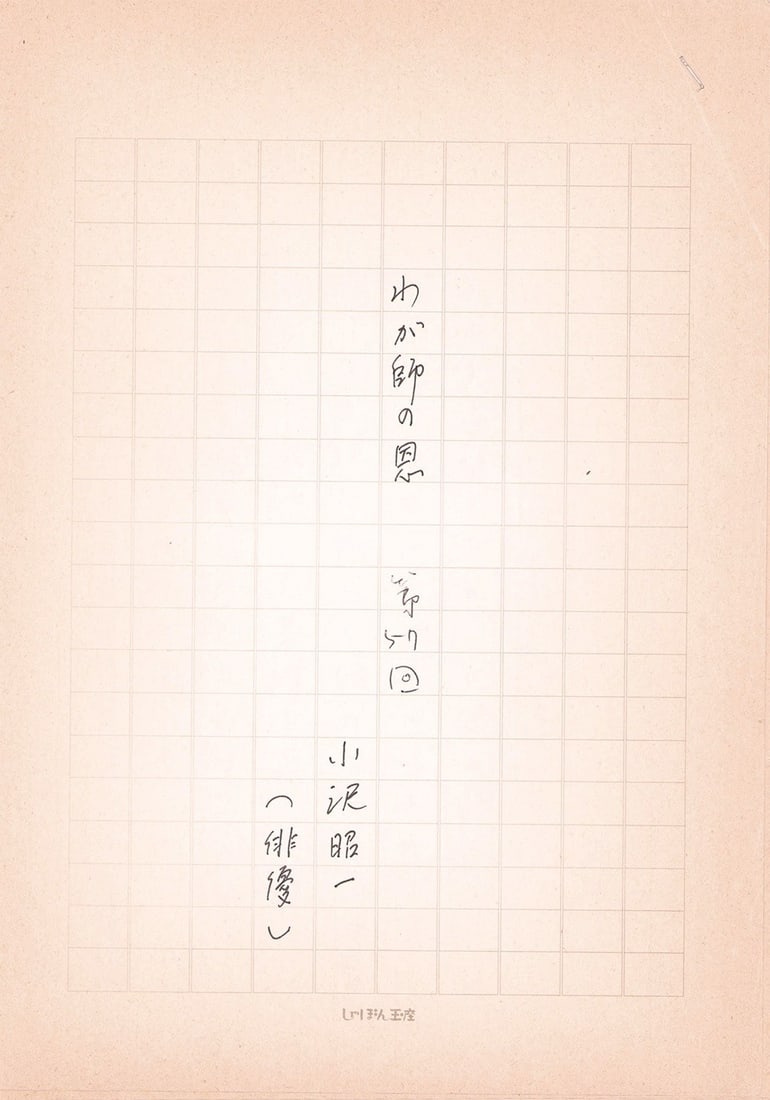 わが師の恩　第57回
小沢昭一
（俳優）
しゃぼん玉座